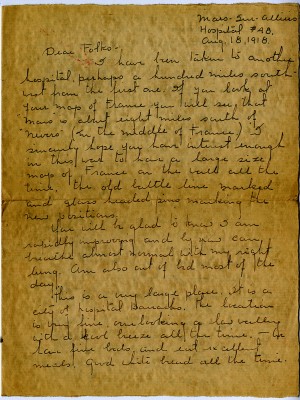 Mars-Sur-Allier
Hospital #48.
Aug. 18, 1918.
Dear Folks-,
I have been taken to another
hospital, perhaps a hundred miles south-
west from the first one. If you look at
your map of France you will see, that
Mars is about eight miles south of
"Nevers" (in the middle of France) I
sincerely hope you have interest enough
in this war to have a large size
map of France on the wall all the
time, the old battle line marked
and glass headed pins marking the
new positions.
You will be glad to know I am
rapidly improving and by now can
breathe almost normal with my right
lung. Am also out of bed most of the
day.
This is a very large place, it is a
city of hospital barracks. The location
is very fine, overlooking a low valley
with a cool breeze all the time. – We
have fine beds, and eat excellent
meals. Good white bread all the time.